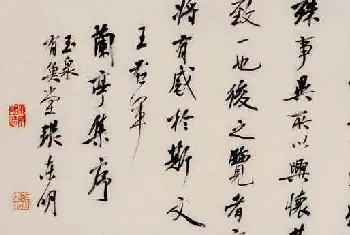 殊事異所以興懷其
致一也後之覽者亦
將有感於斯文
王右軍
蘭亭集序
玉泉
堂張东明